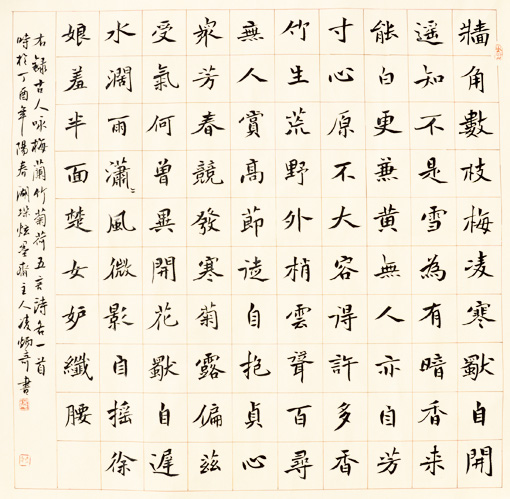 牆角數枝梅凌寒獨自開
遥知不是雪為有暗香来
能白更兼黄無人亦自芳
寸心原不大容得許多香
竹生荒野外梢雲聳百尋
無人賞高節徒自抱貞心
衆芳春競發寒菊露偏兹
受氣何曾異開花獨自遲
水濶雨瀟〻風微影自摇徐
娘羞半面楚女妒纖腰
右録古人咏梅蘭竹菊荷五言詩各一首
時於丁酉年陽春湖墨齋主人凌炳奇書